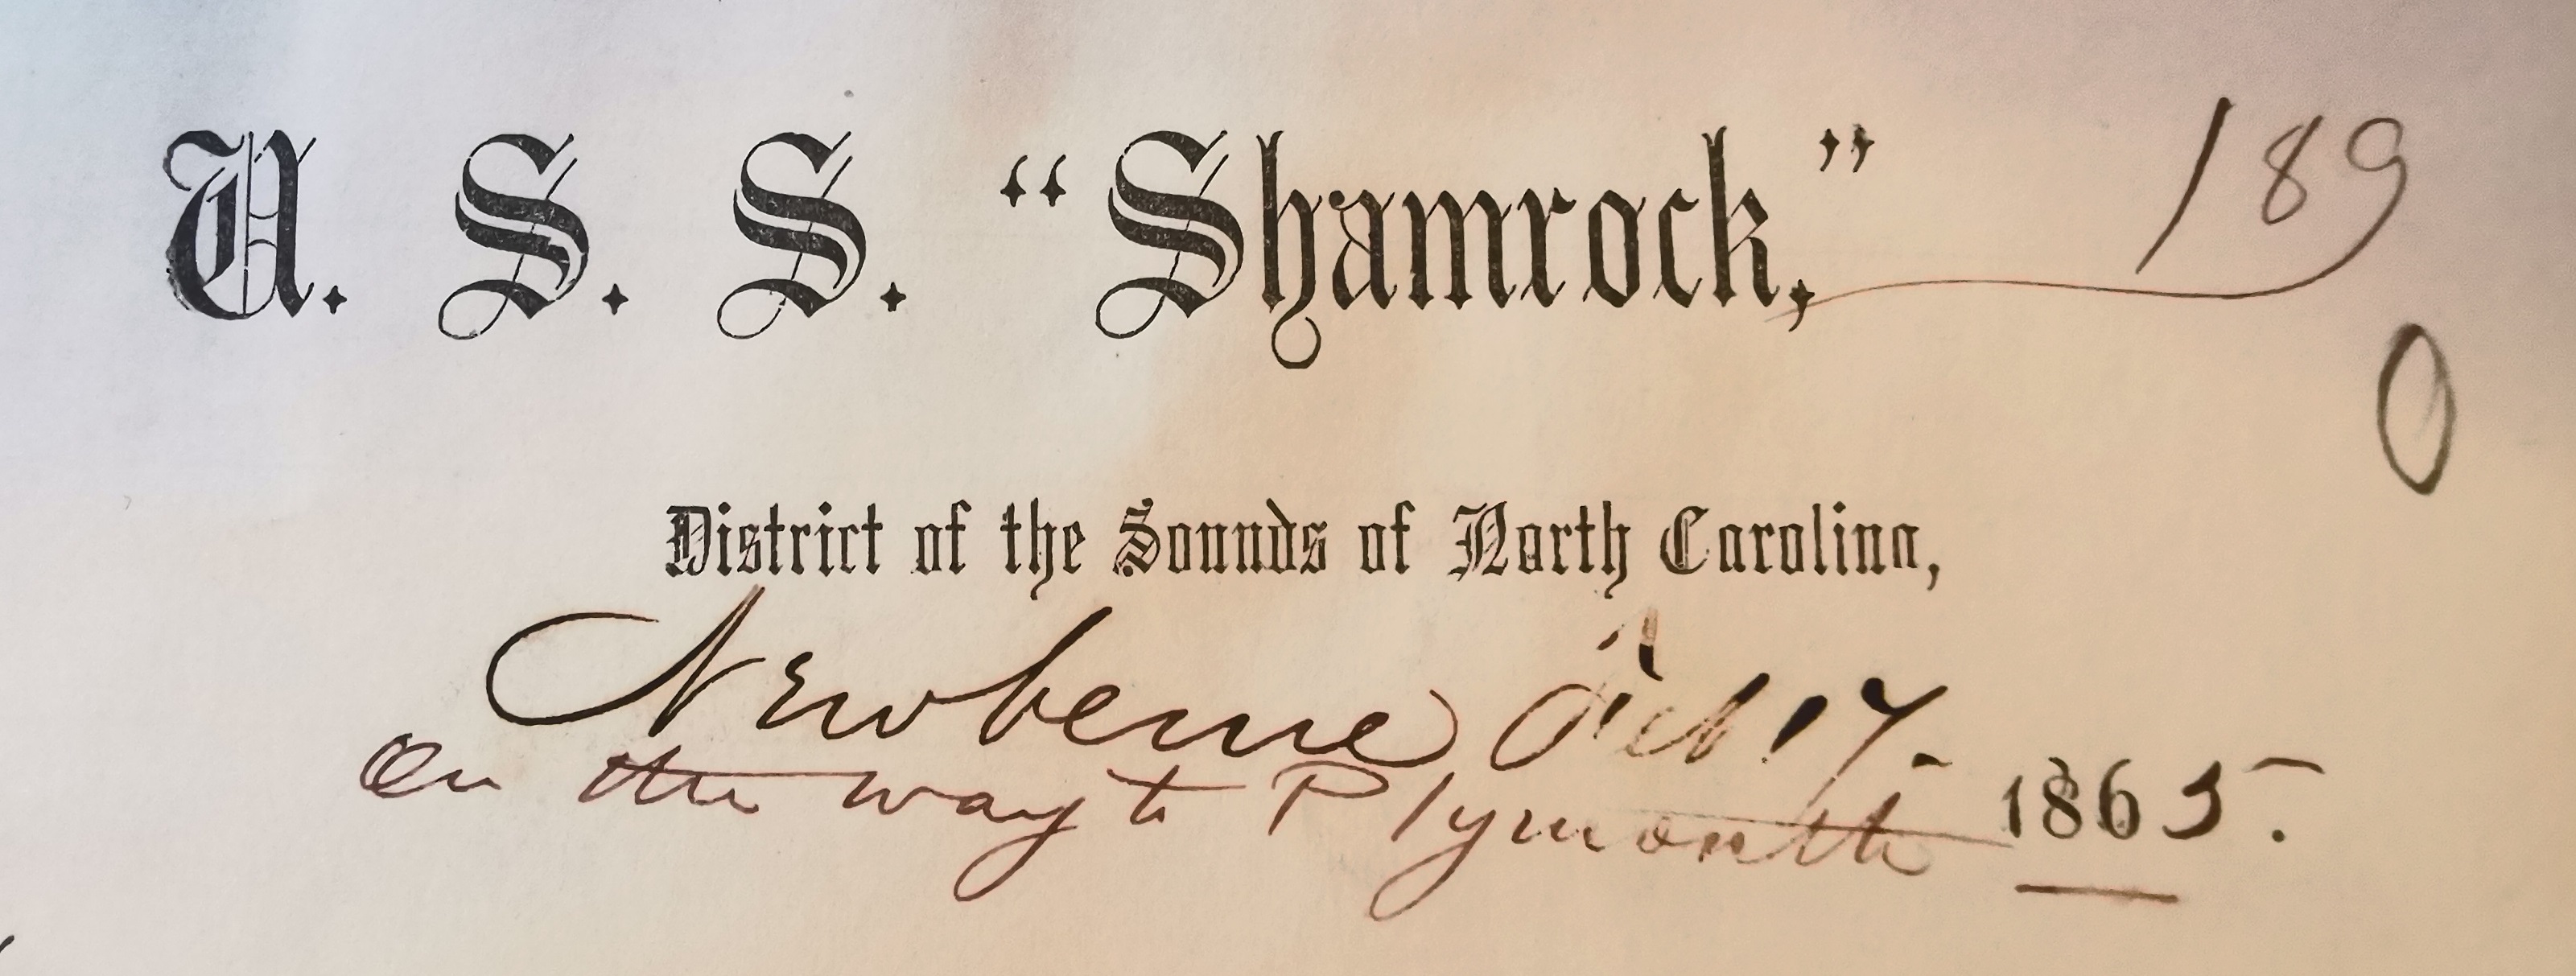 U. S. S. “Shamrock,” 189
0
District of the Sounds of North Carolina,
Newberne Oct 17. 1865.
On the way to Plymouth